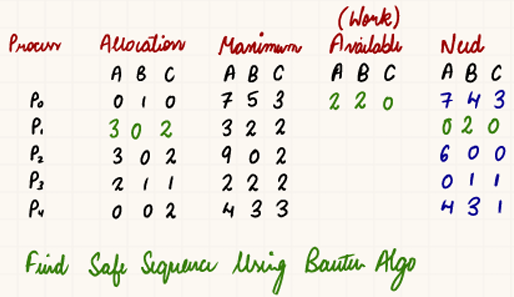 (Work)
Process Allocation Maximum Available Need
A B C A B C A B C A B C
P0 0 1 0 7 5 3 2 2 0 7 4 3
P1 3 0 2 3 2 2 0 2 0
P2 3 0 2 9 0 2 6 0 0
P3 2 1 1 2 2 2 0 1 1
P4 0 0 2 4 3 3 4 3 1
Find Safe Sequence Using Banker Algo